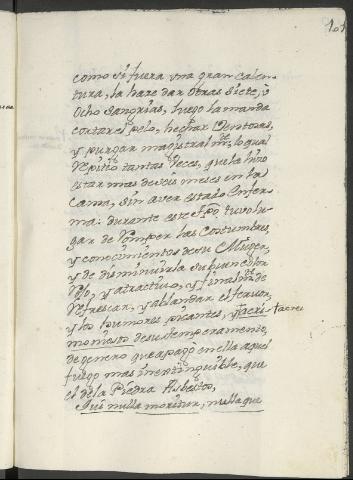 101
como si fuera una gran calen-
tura, la hare dar otras siete, ò
ocho sangrias, luego la manda
cortar el pelo, hechar Ventosas,
y purgar magistralmte, lo qual
repitio tantas veces, que la hizo
estar mas de seis meses en la
Cama, sin aver estado Enfer-
ma: durante este tpo, tuvo lu-
gar de romper las Costumbres,
y conocimientos de su Muger,
y de disminuirla su buen color
rojo, y atractivo, y finalmte de
refrescar, y ablandar el fervor,
y los humores picantes, y acri-
moniosos de su temperamento,
de genero que apagò en ella aquel
fuego mas inextinguible, que
el de la Piedra Asbestos,
Aui nulla moritur, nulla que